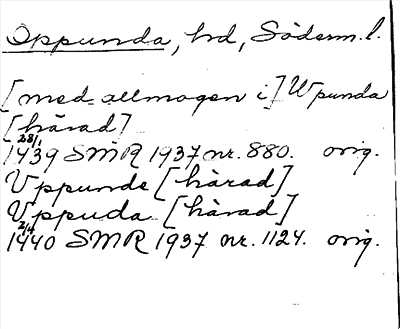 Oppunda, hd, Söderm. l.
[med allmogen i] Wpunda
[härad]
28/1
1439 SMR 1937 nr. 880. orig.
Vppunde [härad]
Vppuda [härad]
2/4
1440 SMR 1937 nr. 1124. orig.